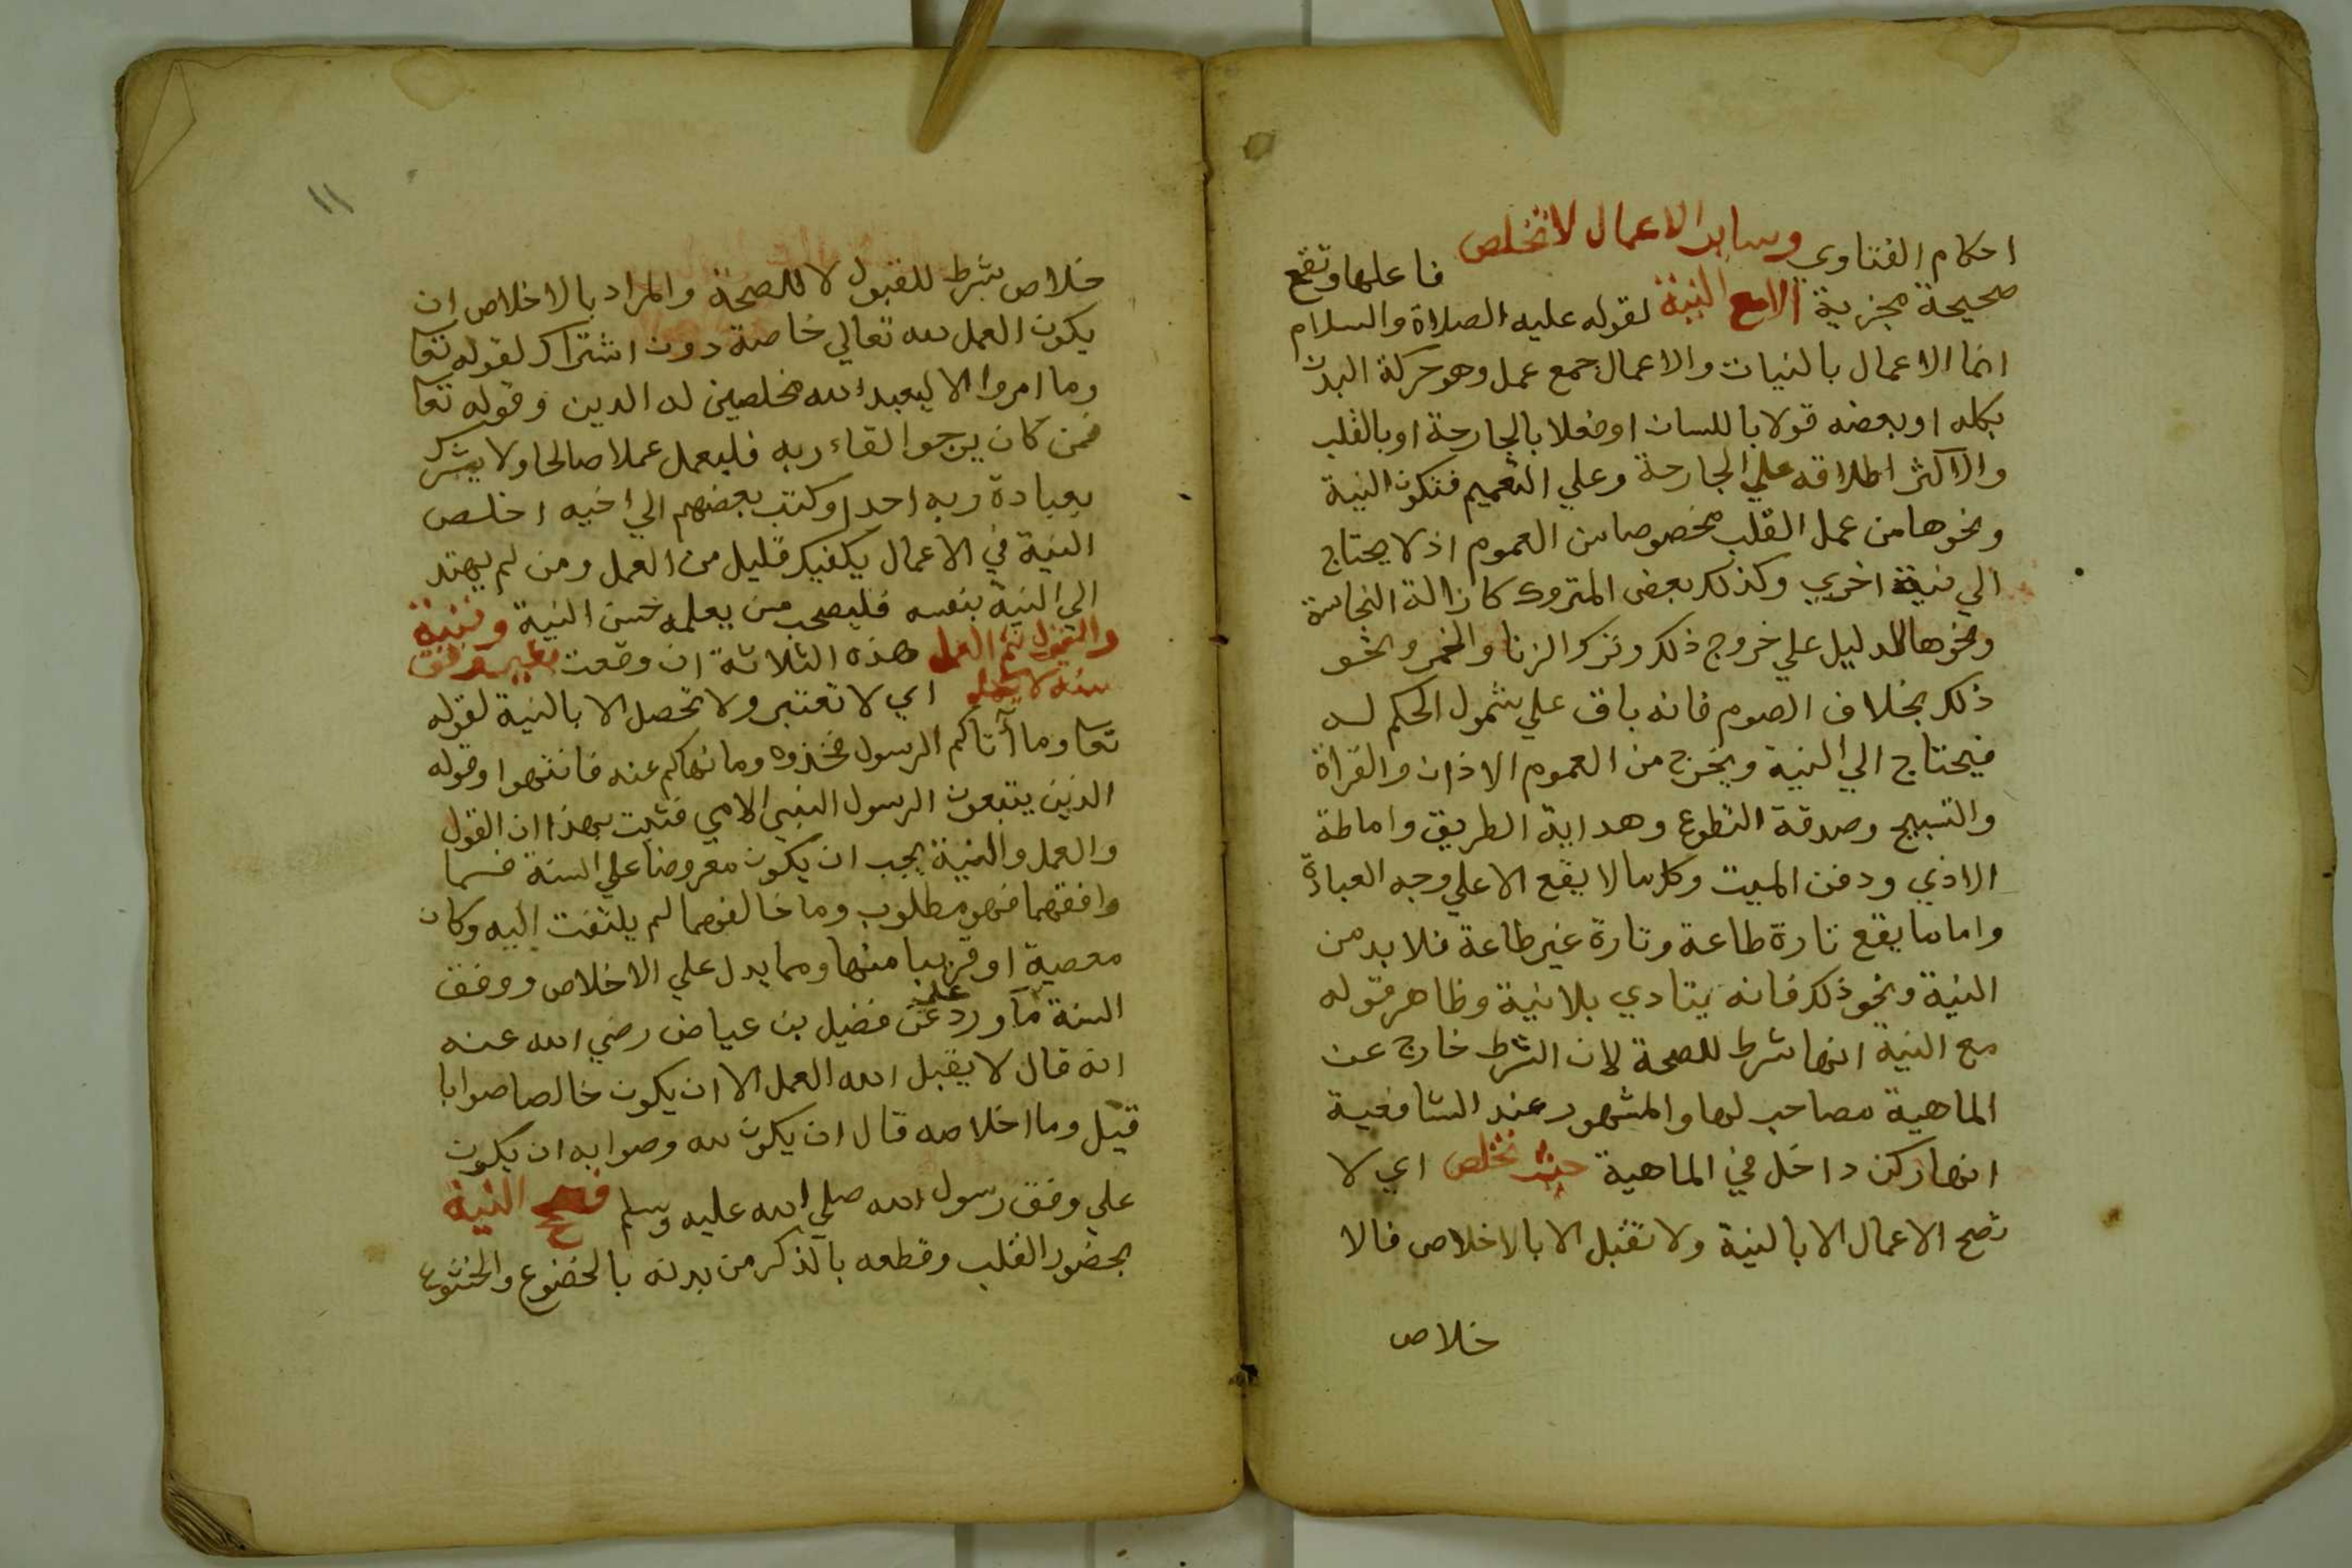 احكام الفتاوي وساير الاعمال لا تخلص فاعلها وتقع
صحيحة مجزية الا مع النية لقوله عليه الصلاة والسلام
انما الاعمال بالنيات والاعمال جمع عمل وهو حركة البدن
بكله او بعضه قولا باللسان او فعلا بالجارحة او بالقلب
والاكثر اطلاقه علي الجارحة وعلي التعميم فتكون النية
ونحوها من عمل القلب مخصوصا من العموم اذ لا يحتاج
الي نية اخري وكذلك بعض المتروك كازالة النجاسة
ونحوها للدليل علي خروج ذلك وترك الزنا والخمر ونحو
ذلك بخلاف الصوم فانه باق علي شمول الحكم له
فيحتاج الي النية ويخرج من العموم الاذان والقراة
والتسبيح وصدقة التطوع وهداية الطريق واماطة
الاذي ودفن الميت وكل ما لا يقع الا علي وجه العبادة
واما ما يقع تارة طاعة وتارة غير طاعة فلا بد من
النية ونحو ذلك فانه يتادي بلا نية وظاهر قوله
مع النية انها شرط للصحة لان الشرط خارج عن
الماهية مصاحب لها والمشهور عند الشافعية
انها ركن داخل في الماهية حيث تخلص اي لا
تصح الاعمال الا بالنية ولا تقبل الا بالاخلاص فالا
خلاص
١١
خلاص شرط للقبول لا للصحة والمراد بالاخلاص ان
يكون العمل لله تعالي خاصة دون اشتراك لقوله تعا
وما امروا الا ليعبد الله مخلصين له الدين وقوله تعا
فمن كان يرجوا لقاء ربه فليعمل عملا صالحا ولا يشرك
بعبادة ربه احدا وكتب بعضهم الي اخيه اخلص
النية في الاعمال يكفيك قليل من العمل ومن لم يهتد
الي النية بنفسه فليصحب من يعلمه حسن النية ونية
والقول ثم العمل هذه الثلاثة ان وقعت بغير وفق
سنة لا اي لا تعتبر ولا تحصل الا بالنية لقوله
تعا وما آتاكم الرسول فخذوه وما نهاكم عنه فانتهوا وقوله
الذين يتبعون الرسول النبي الامي فثبت بهذا ان القول
والعمل والنية يجب ان يكون معروضا علي السنة فما
وافقهما فهو مطلوب وما خالفهما لم يلتفت اليه وكان
معصية او قريبا منها ومما يدل علي الاخلاص ووفق
السنة ما ورد عن فضيل بن عياض رضي الله عنه
انه قال لا يقبل الله العمل الا ان يكون خالصا صوابا
قيل وما اخلاصه قال ان يكون لله وصوابه ان يكون
علي وفق رسول الله صلي الله عليه وسلم النية
بحضور القلب وقطعه بالذكر من بدنه بالخضوع والخشوع